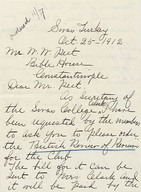 Sivas Turkey
Oct 25th 1912
Mr. W. W. Peet
Bible House
Constantinople
Dear Mr. Peet,
As Secretary of
the Sivas College Club, I have
been requested by the members
to ask you to please order
the British Review of Reviews
for the Club
The bill for it can be
sent to Mrs Clark, and
it will be paid by the